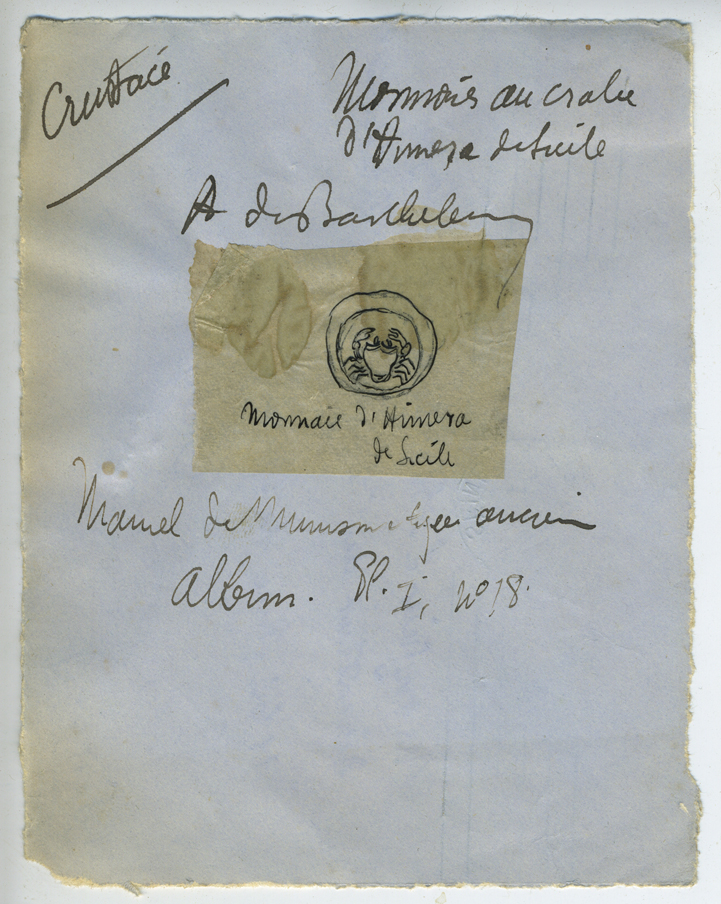 Crustacé
Monnaies au crabe
d'Himera de Sicile
A de Barthelemy
Monnaie d'Himera
de Sicile
Manuel de Numismatique ancien
Album. Pl. I, nº 18.